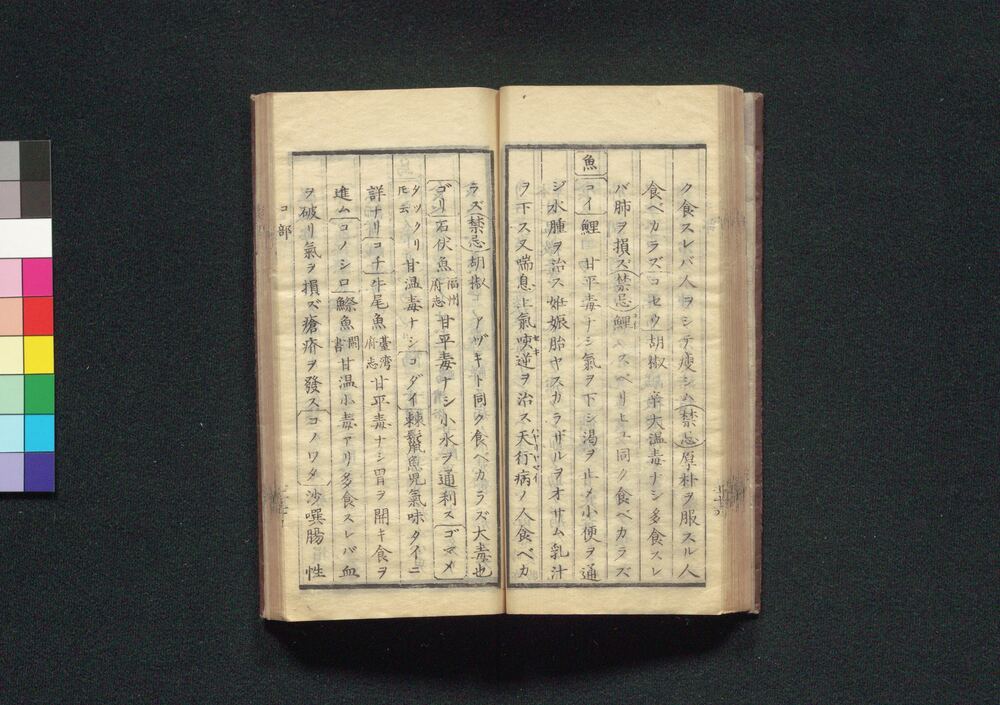 ク食スレバ人ヲシテ痩シム禁忌厚朴ヲ服スル人
食ベカラズコセウ胡椒辛大溫毒ナシ多食スレ
バ肺ヲ損ズ禁忌鯉スベリヒユ同ク食ベカラズ
魚
コイ鯉 甘平毒ナシ氣ヲ下シ渴ヲ止メ小便ヲ通
ジ水腫ヲ治ス妊娠胎ヤスカラザルヲオサム乳汁
ヲ下ス又喘息上氣咳逆ヲ治ス天行病ノ人食ベカ
セキ
ハヤリヤマイ
ラズ禁忌胡椒 アヅキト同ク食ベカラズ大毒也
ゴリ石伏魚福州府志甘平毒ナシ小水ヲ通利スゴマメ
タツクリ正云甘溫毒ナシコダイ棘鬣魚児氣味タイニ
詳ナリコチ牛尾魚臺湾府志甘平毒ナシ胃ヲ開キ食ヲ
進ムコノシロ鰶魚閩書甘温小毒アリ多食スレバ血
ヲ破リ氣ヲ損ズ瘡疥ヲ發スコノワタ沙噀腸 性
コ部